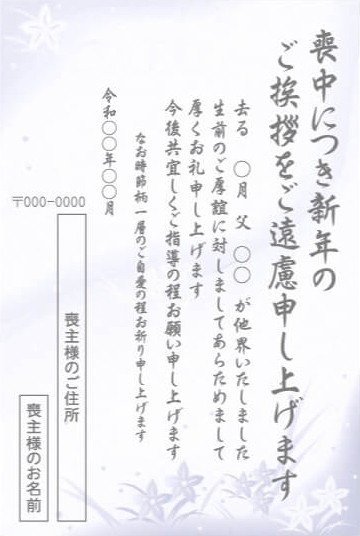 喪中につき新年の
ご挨拶をご遠慮申し上げます
去る 〇月 父 〇〇 が他界いたしました
生前のご厚誼に対しましてあらためまして
厚くお礼申し上げます
今後共宜しくご指導の程お願い申し上げます
なお時節柄一層のご自愛の程お祈り申し上げます
令和〇〇年〇〇月
〒000-0000
喪主様のご住所
喪主様のお名前